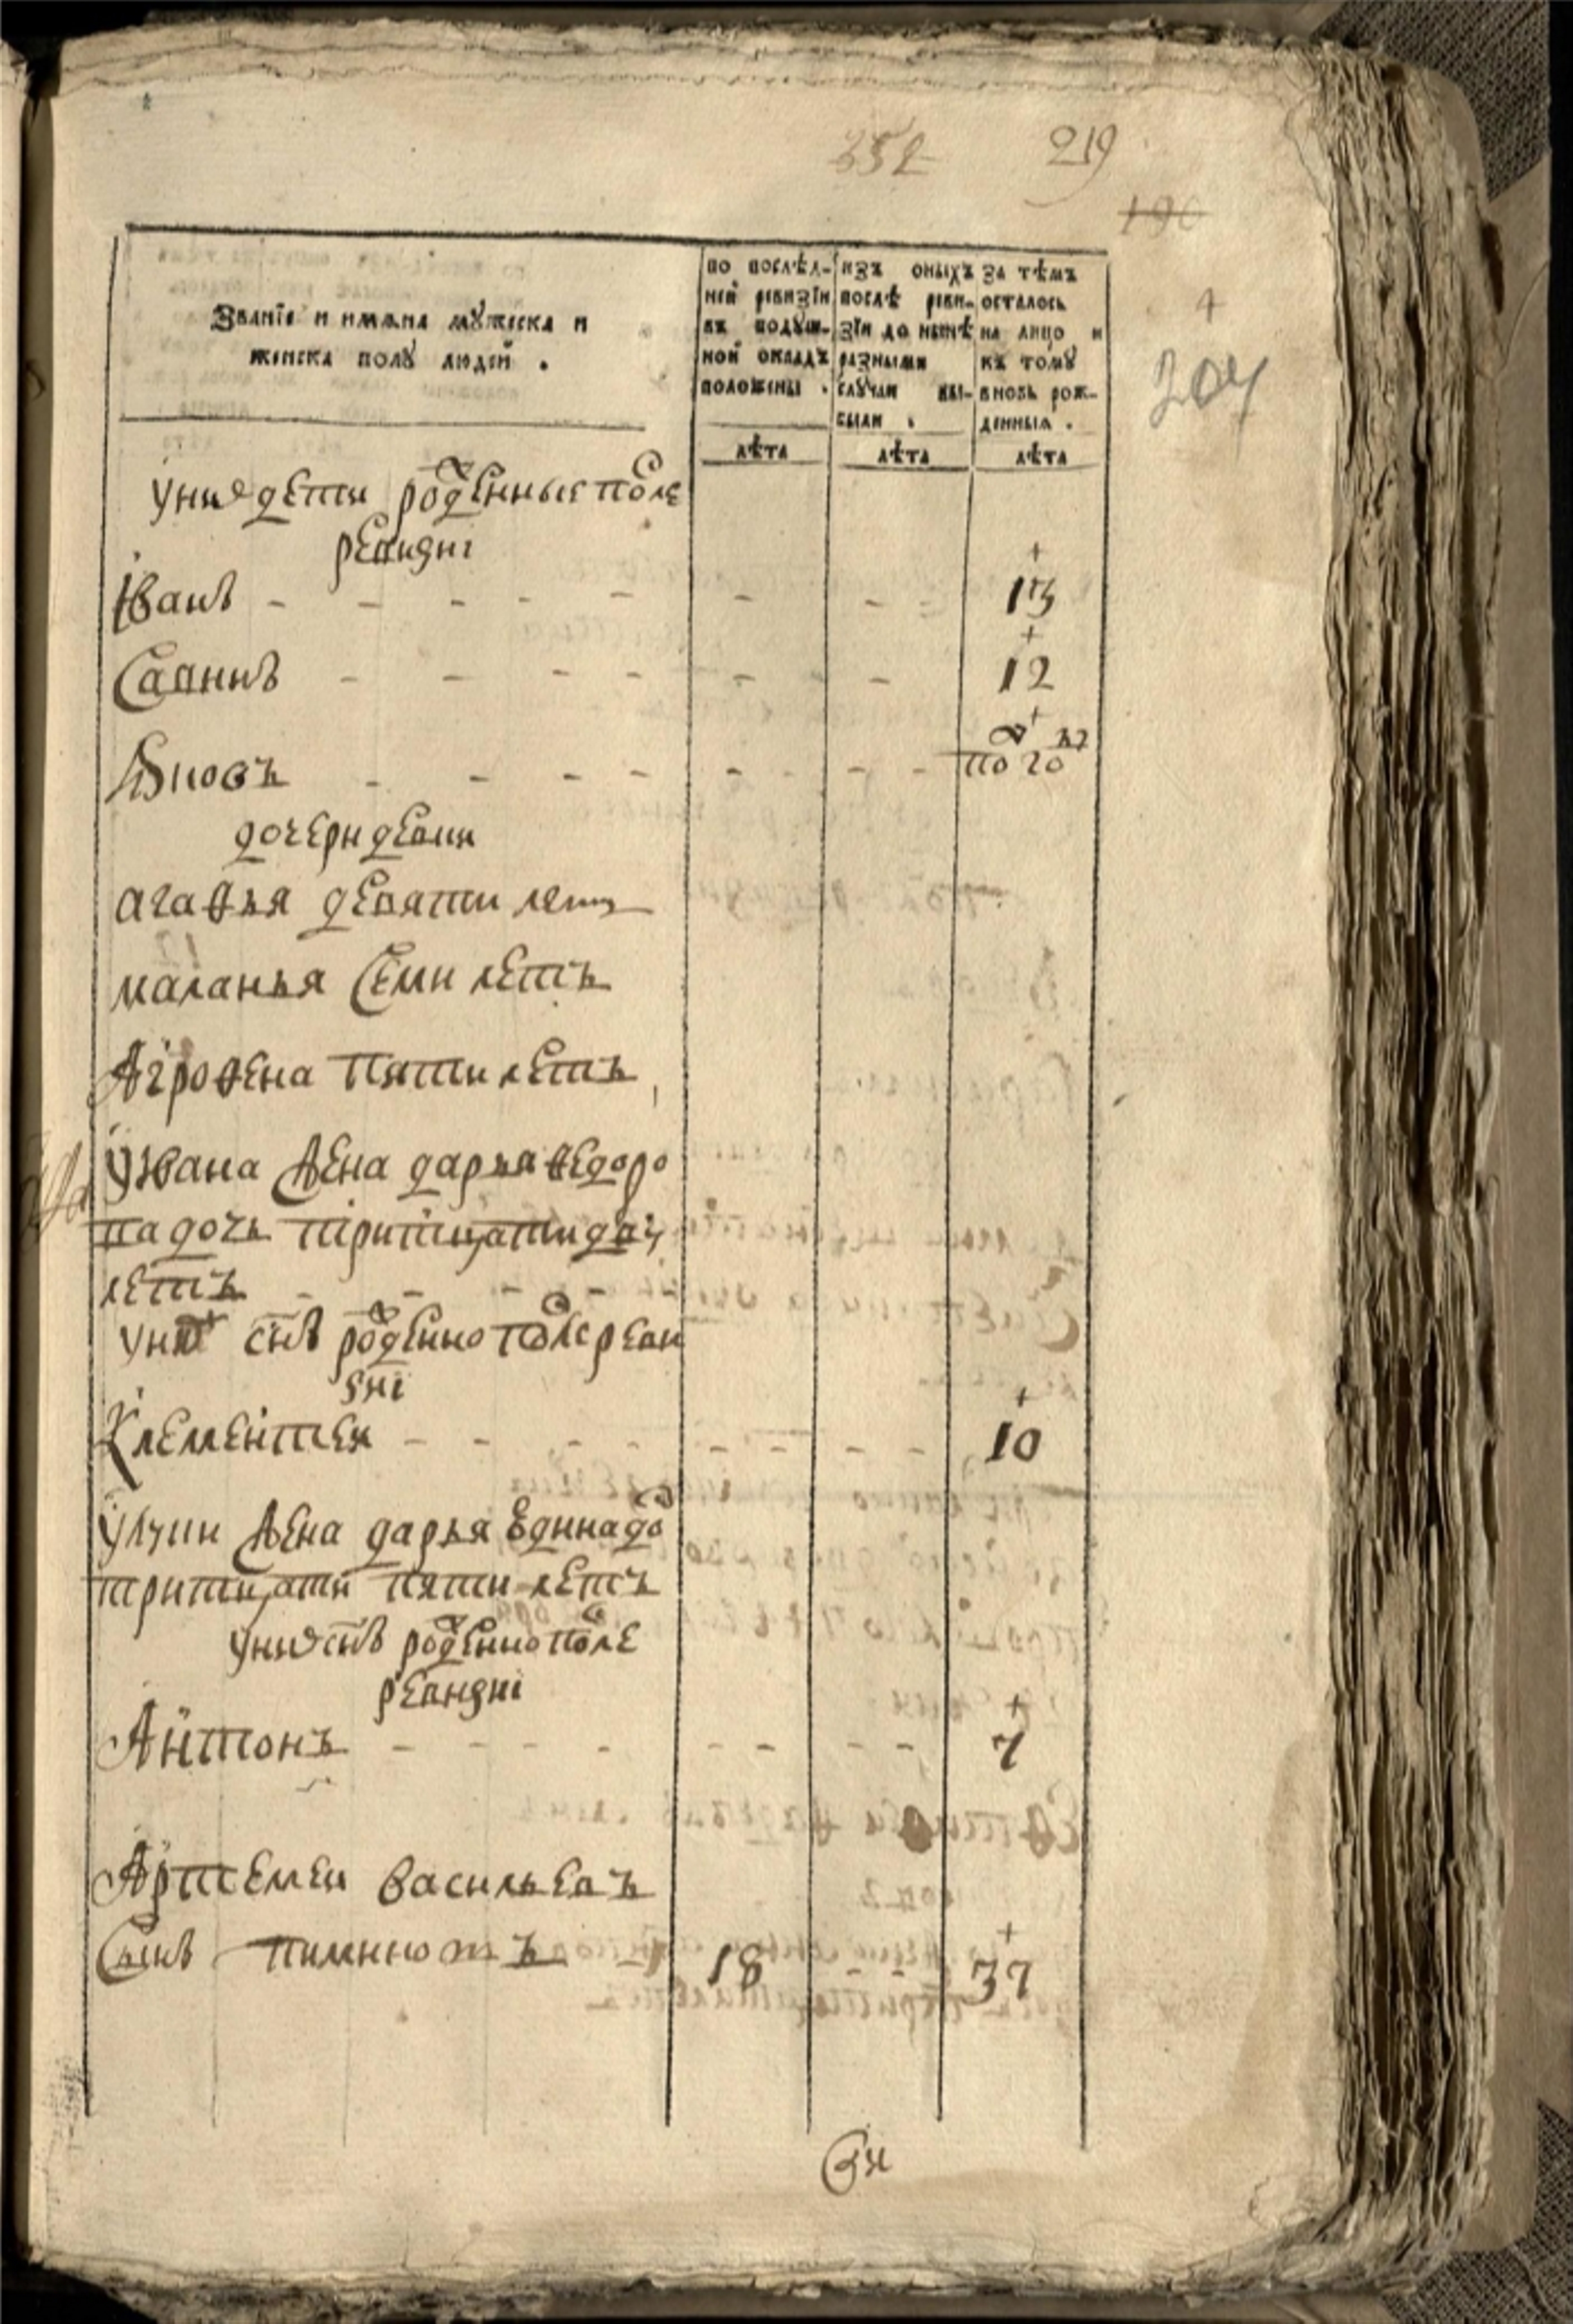 352 219
190
204
Званїе и имяна мꙋжеска и
женска полꙋ людей .
по послѣд-
ней ревизїи
въ подꙋш-
ной окладъ
положены .
изъ оныхъ
послѣ реви-
зїи до нынѣ
разными
слꙋчаи вы-
были .
за тѣмъ
осталось
на лицо и
къ томꙋ
вновь рож-
денныя .
лѣта лѣта лѣта
у них дети рожденные после
ревизиі
Іванъ 13
Савинъ 12
Яковъ полгоду
дочери девки
агафья девяти летъ
маланья Семи летъ
Агрофена пяти летъ
У Ивана жена дарья федоро
ва дочь тритцати дву
летъ
у них снъ рожденно после реви
зиі
Клементеи 10
жена дарья
тритцати пяти летъ
у них снъ рожденно после
ревизиі
Антонъ 7
Артемеи васильевъ
Сынъ 18 37